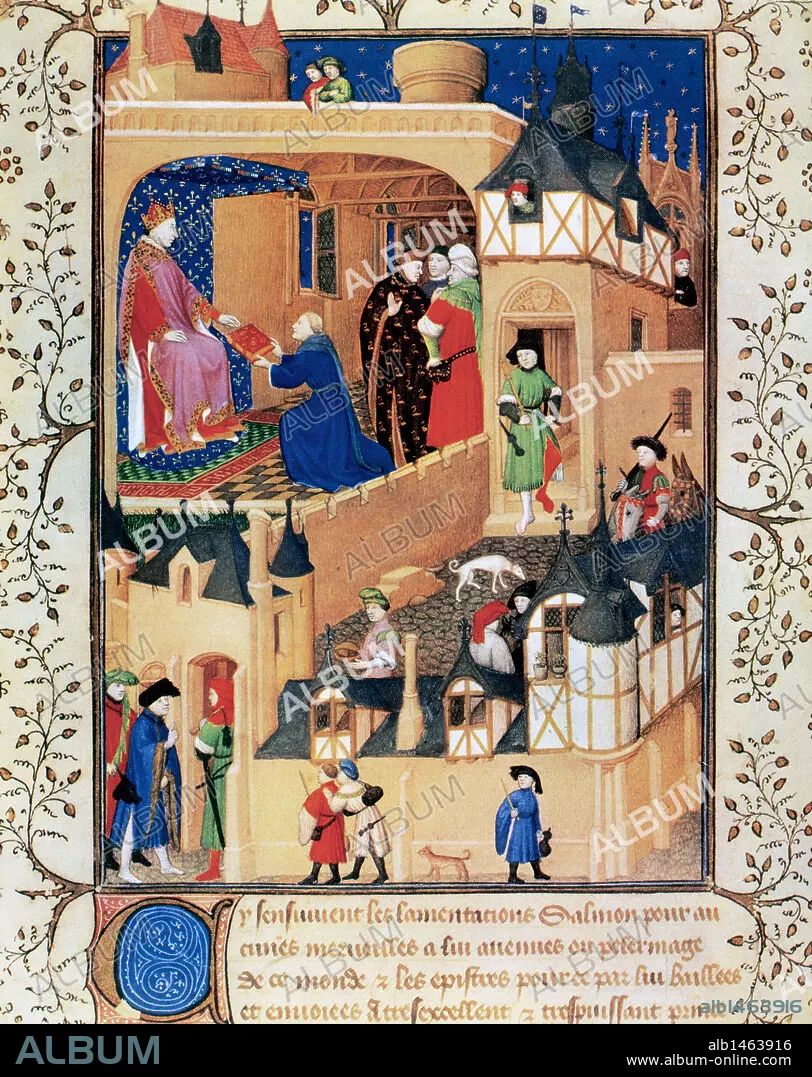 Cy sensuiuent les lamentacions Salmon pour au
cunes merueilles a lui auenues ou pelermage
de ce monde & les epistres pour ce par lui baillees
et enuoiees A tresexcellent & trespuissant prince
alb1463916
ALBUM
alb1463916
www.album-online.com